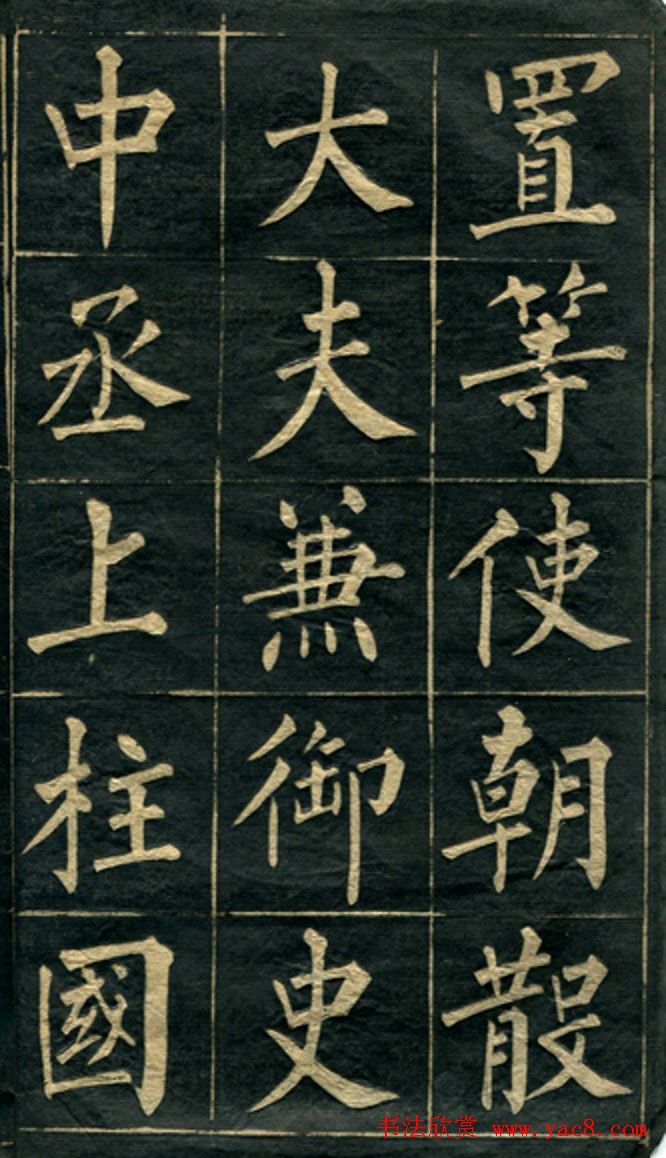 置等使朝散
大夫兼御史
中丞上柱國
书法欣赏 www.yac8.com